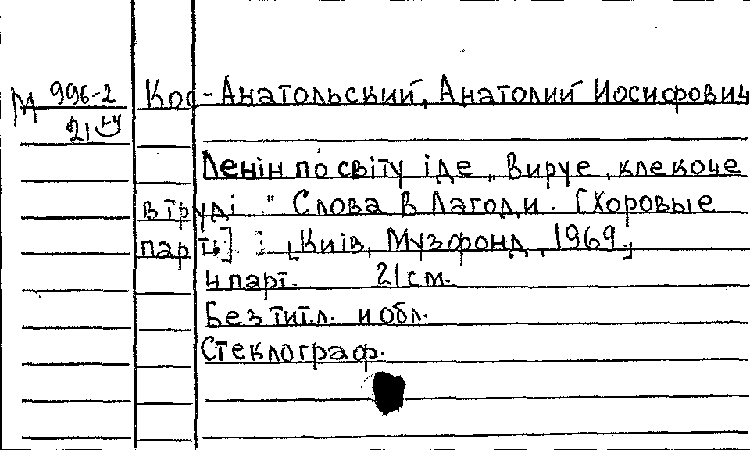 М 996-2 Кос-Анатольский, Анатолий Иосифович
21
Ленін по світу іде „Вирує, клекоче
в труді" Слова В Лагоди. [Хоровые
парт.] : [Київ, Музфонд, 1969]
4 парт. 21 см.
Без тит.л. и обл.
Стеклограф.